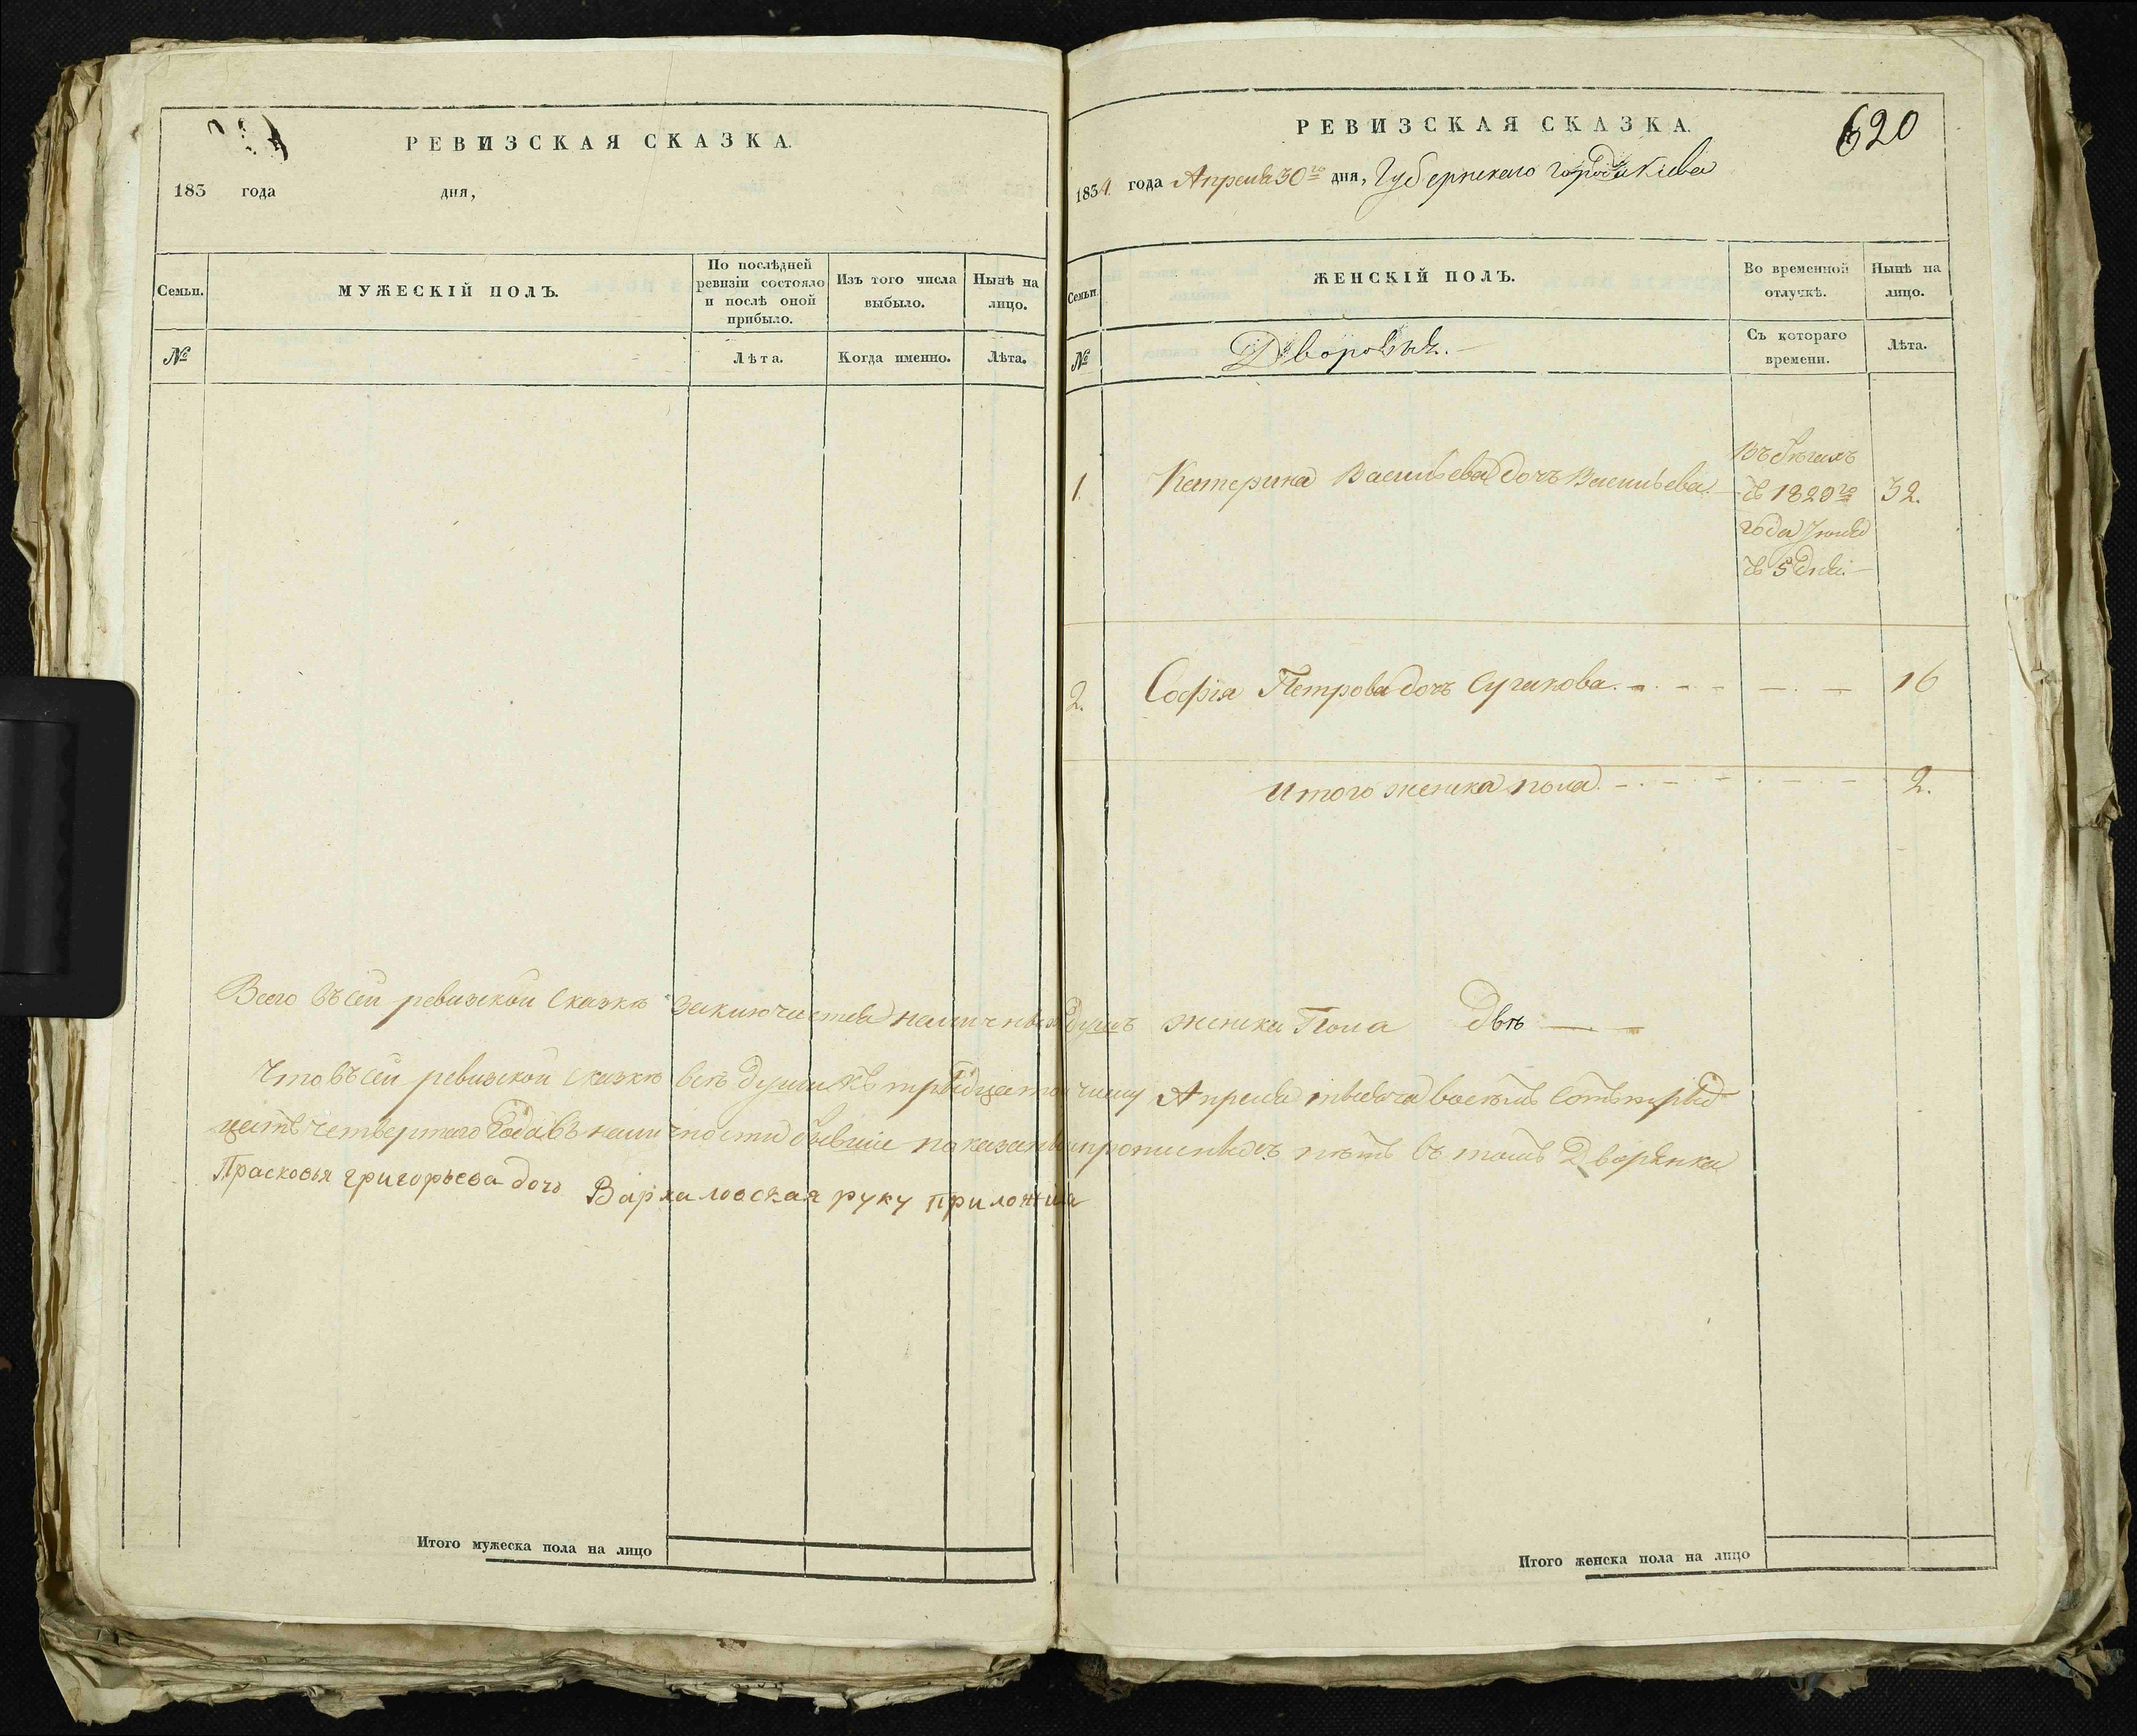 РЕВИЗСКАЯ СКАЗКА.
183 года дня,
Семьи. МУЖЕСКІЙ ПОЛЪ. По послѣдней ревизіи состояло и послѣ оной прибыло. Изъ того числа выбыло. Нынѣ на лицо.
№ Лѣта. Когда именно. Лѣта.
Итого мужеска пола на лицо
РЕВИЗСКАЯ СКАЗКА.
620
1834. года Апреля 30го дня, Губернскаго города Кіева
Семьи. ЖЕНСКІЙ ПОЛЪ. Во временной отлучкѣ. Нынѣ на лицо.
№ Дворовыя. Съ котораго времени. Лѣта.
1. Катерина Васильева дочь Васильева. Въ бѣгахъ съ 1820го года Іюня съ 5 дня. 32.
2. Софія Петрова дочь Сучкова. 16
Итого женска пола. 2.
Всего въ сей ревизкой сказкѣ заключается наличныхъ душъ женска пола двѣ
Что въ сей ревизкой сказкѣ всѣ души къ тридцатому числу Апреля тысяча восемь сотъ трид
цать четвертаго Года въ наличности бывшіе показаны и прописныхъ нѣтъ въ томъ Дворянка
Прасковья григорьева дочь руку приложила
Итого женска пола на лицо